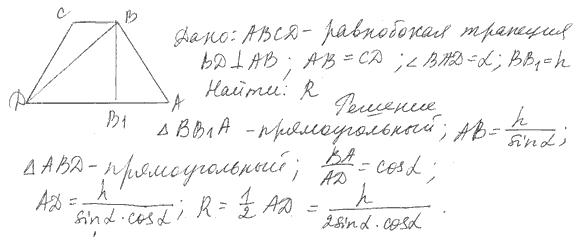 C B
D B₁ A
Дано: ABCD - равнобокая трапеция
BD⊥AB; AB = CD; ∠BAD = α; BB₁ = h
Найти: R
Решение
△BB₁A - прямоугольный; AB = h/sinα;
△ABD - прямоугольный; BA/AD = cosα;
AD = h/(sinα·cosα); R = 1/2 AD = h/(2sinα·cosα).